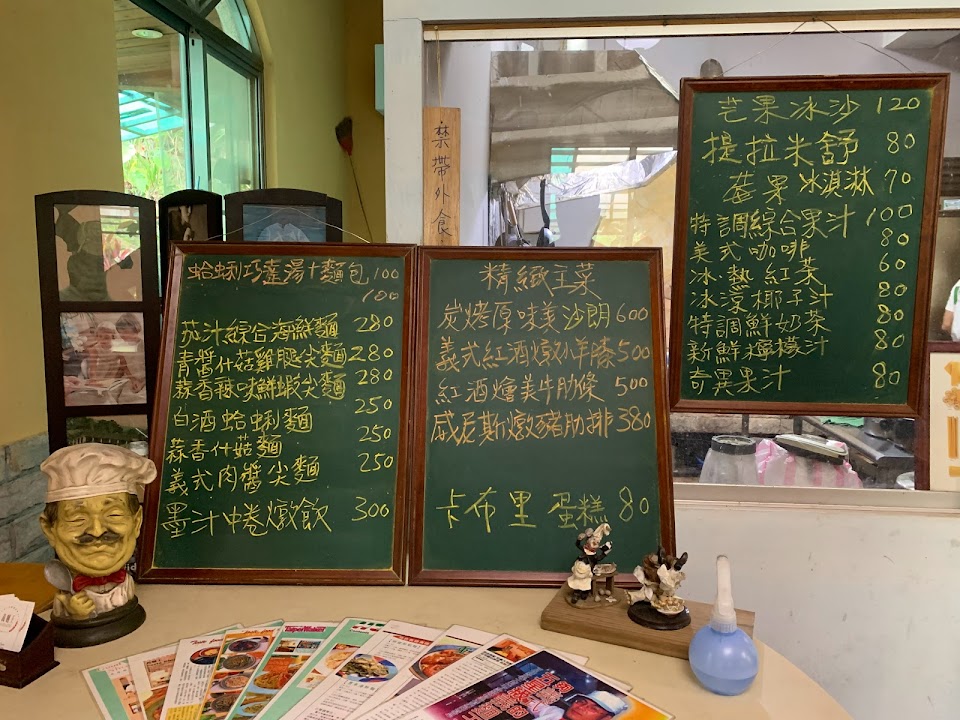 蛤蜊巧達湯+麵包 100
100
茄汁綜合海鮮麵 280
青醬什菇雞腿尖麵 280
蒜香辣味鮮蝦尖麵 280
白酒蛤蜊麵 250
蒜香什菇麵 250
義式肉醬尖麵 250
墨汁中卷燉飯 300
精緻主菜
炭烤原味美沙朗 600
義式紅酒燉小羊膝 500
紅酒燴美牛肋條 500
威尼斯燉豬肋排 380
卡布里 蛋糕 80
禁帶外食
芒果冰沙 120
提拉米舒 80
莓果冰淇淋 70
特調綜合果汁 100
美式咖啡 80
冰.熱紅茶 60
冰涼椰子汁 80
特調鮮奶茶 80
新鮮檸檬汁 80
奇異果汁 80